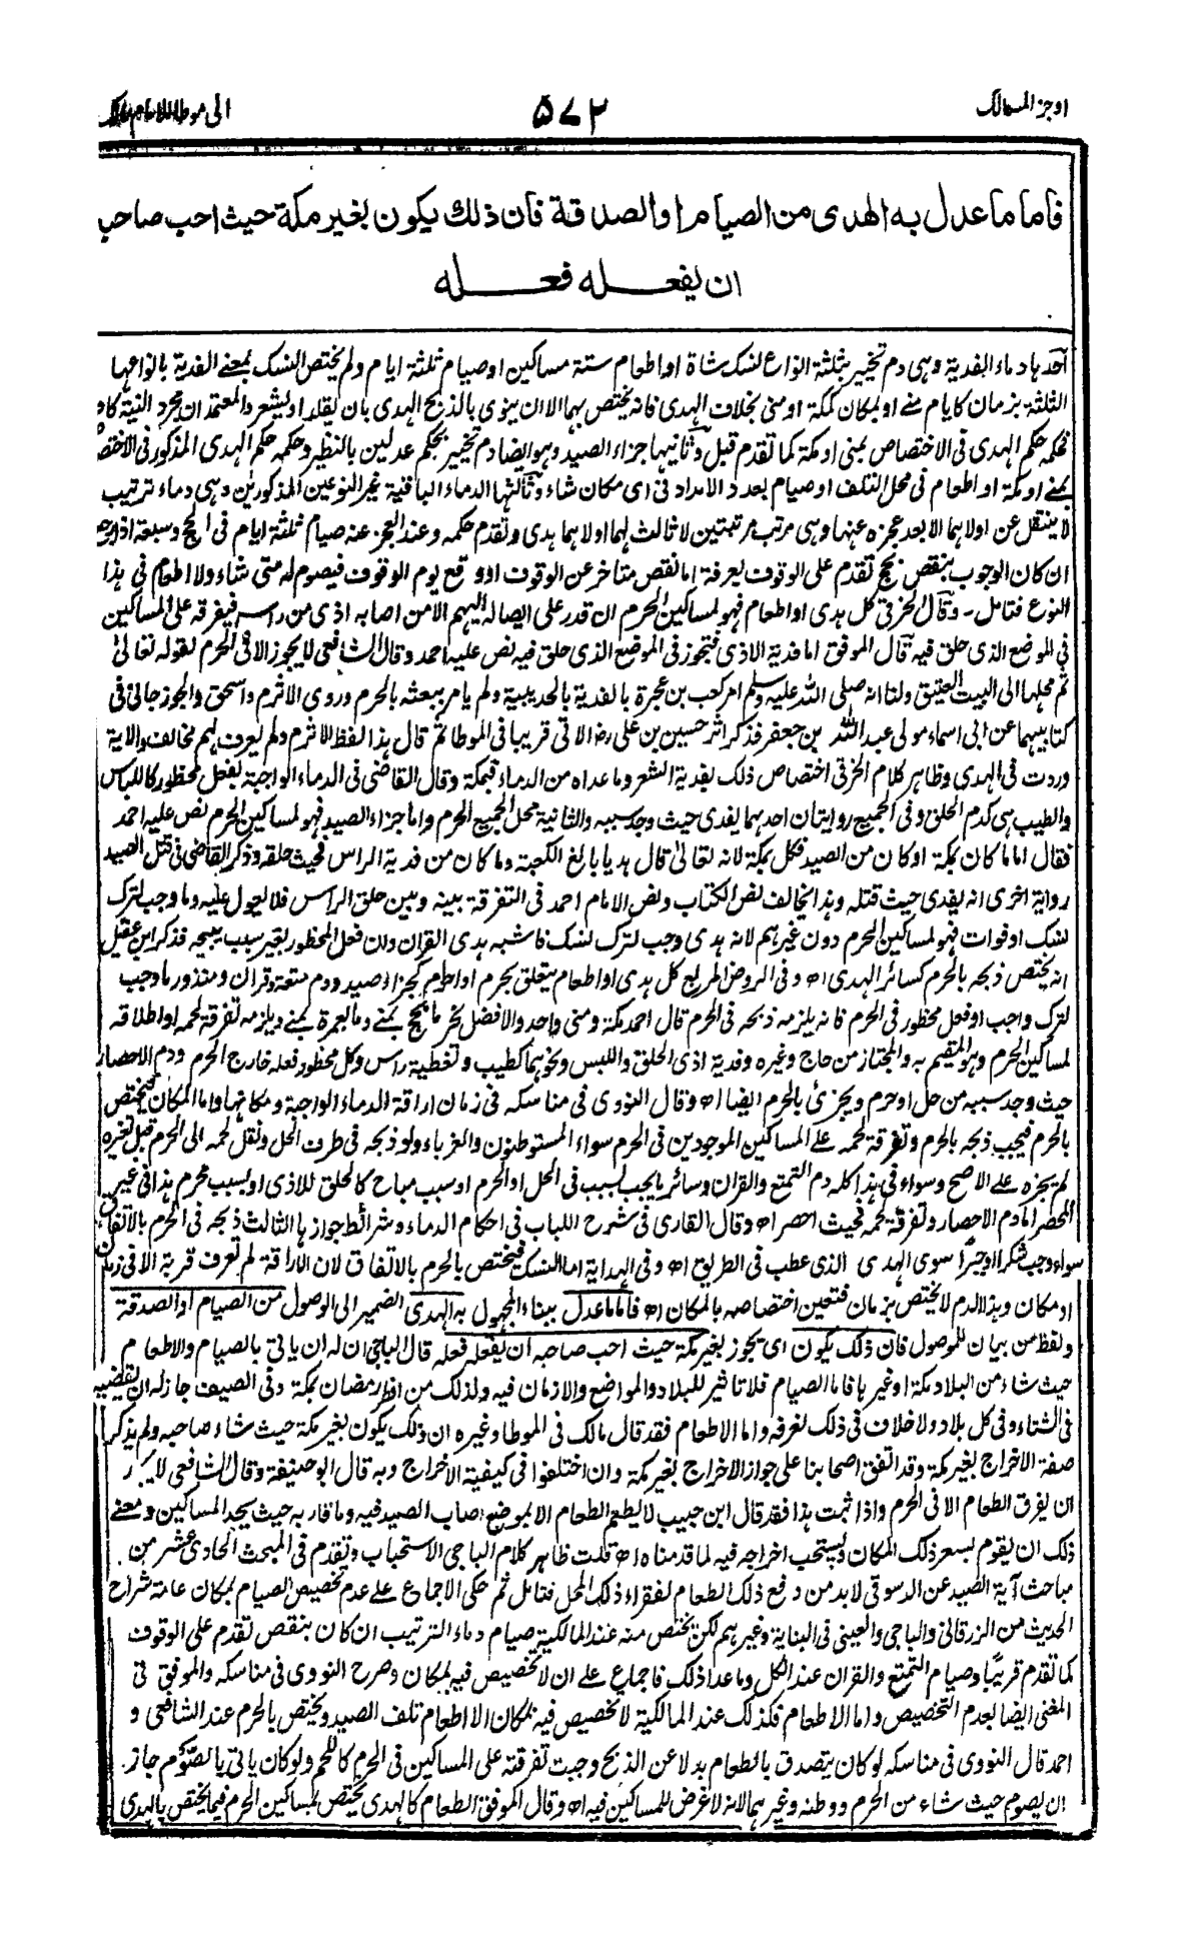 اوجز المسالك
٥٧٢
الى موطا الامام مالك
فاما ما عدل به الهدى من الصيام او الصدقة فان ذلك يكون بغير مكة حيث احب صاحبه
ان يفعله فعله
احدها دماء الفدية وهى دم تخيير بثلثة انواع نسك شاة او اطعام ستة مساكين او صيام ثلثة ايام ولم يختص النسك بمعنے الفدية بانواعها
الثلثة بزمان كايام منے او بمكان كمكة او منى بخلاف الهدى فانه يختص بهما الا ان ينوى بالذبح الهدى بان يقلد او يشعر والمعتمد ان مجرد النية كاف
فحكمه حكم الهدى فى الاختصاص بمنى او مكة كما تقدم قبل وثانيها جزاء الصيد وهو ايضا دم تخيير بحكم عدلين بالنظير وحكمه حكم الهدى المذكور فى الاختصاص
بمنے او مكة او اطعام فى محل التلف او صيام بعدد الامداد فى اى مكان شاء وثالثها الدماء الباقية غير النوعين المذكورين وهى دماء ترتيب
لا ينتقل عن اولاهما الا بعد عجزه عنها وهى مرتب مرتبتين لا ثالث لهما اولاهما هدى وتقدم حكمه وعند العجز عنه صيام ثلثة ايام فى الحج وسبعة اذا رجع
ان كان الوجوب بنقص بحج تقدم على الوقوف بعرفة اما نقص متاخر عن الوقوف او وقع يوم الوقوف فيصوم له متى شاء ولا اطعام فى هذا
النوع فتامل - وقال الخرقى كل هدى او اطعام فهو لمساكين الحرم ان قدر على ايصاله اليهم الا من اصابه اذى من راسه فيفرقه على المساكين
فى الموضع الذى حلق فيه قال الموفق اما فدية الاذى فتجوز فى الموضع الذى حلق فيه نص عليه احمد وقال الشافعى لا يجوز الا فى الحرم لقوله تعالىٰ
ثم محلها الى البيت العتيق ولنا انه صلى الله عليه وسلم امر كعب بن عجرة بالفدية بالحديبية ولم يامر ببعثه بالحرم وروى الاثرم واسحق والجوزجانى فى
كتابيهما عن ابى اسماء مولى عبد الله بن جعفر فذكر اثر حسين بن على رضہ الاتى قريبا فى الموطا ثم قال هذا لفظ الاثرم ولم يعرف لهم مخالف والاية
وردت فى الهدى وظاهر كلام الخرقى اختصاص ذلك بفدية الشعر وما عداه من الدماء فبمكة وقال القاضى فى الدماء الواجبة بفعل محظور كاللباس
والطيب هى كدم الحلق وفى الجميع روايتان احدهما يفدى حيث وجد سببه والثانية محل الجميع الحرم واما جزاء الصيد فهو لمساكين الحرم نص عليه احمد
فقال اما ما كان بمكة او كان من الصيد فكل بمكة لانه تعالىٰ قال هديا بالغ الكعبة وما كان من فدية الراس فحيث حلقه وذكر القاضى فى قتل الصيد
رواية اخرى انه يفدى حيث قتله وهذا يخالف نص الكتاب ونص الامام احمد فى التفرقة بينه وبين حلق الراس فلا يعول عليه وما وجب لترك
نسك او فوات فهو لمساكين الحرم دون غيرهم لانه هدى وجب لترك نسك فاشبه هدى القران وان فعل المحظور بغير سبب يبيحه فذكر ابن عقيل
انه يختص ذبحه بالحرم كسائر الهدى اھ وفى الروض المربع كل هدى او اطعام يتعلق بحرم او احرام كجزاء صيد ودم متعة وقران ومنذور ما وجب
لترك واجب او فعل محظور فى الحرم فانه يلزمه ذبحه فى الحرم قال احمد مكة ومنى واحد والافضل نحر ما بحج بمنے وما بعمرة بمنے ويلزمه تفرقة لحمه او اطلاقه
لمساكين الحرم وهو المقيم به والمجتاز من حاج وغيره وفدية اذى الحلق واللبس ونحوهما كطيب وتغطية راس وكل محظور فعله خارج الحرم ودم الاحصار
حيث وجد سببه من حل او حرم ويجزئ بالحرم ايضا اھ وقال النووى فى مناسكه فى زمان اراقة الدماء الواجبة ومكانها واما المكان فيختص
بالحرم فيجب ذبحه بالحرم وتفرقة لحمه علے المساكين الموجودين فى الحرم سواء المستوطنون والغرباء ولو ذبحه فى طرف الحل ونقل لحمه الى الحرم قبل تغيره
لم يجزه علے الاصح وسواء فى هذا كله دم التمتع والقران وسائر ما يجب بسبب فى الحل او الحرم او بسبب مباح كالحلق للاذى او بسبب محرم هذا فى غير
المحصر اما دم الاحصار وتفرقة لحمه فحيث احصر اھ وقال القارى فى شرح اللباب فى احكام الدماء وشرائط جوازها الثالث ذبحه فى الحرم بالاتفاق
سواء وجب شكرا او جبرا سوى الهدى الذى عطب فى الطريق اھ وفى الهداية اما النسك فيختص بالحرم بالاتفاق لان الاراقة لم تعرف قربة الا فى زمان
او مكان وهذا الدم لا يختص بزمان فتعين اختصاصه بالمكان اھ فاما ما عدل ببناء المجهول به الهدى الضمير الى الوصول من الصيام او الصدقة
ولفظ من بيان للموصول فان ذلك يكون اى يجوز بغير مكة حيث احب صاحبه ان يفعله فعله قال الباجى ان له ان ياتى بالصيام والاطعام
حيث شاء من البلاد مكة او غيرها فاما الصيام فلا تاثير للبلاد والمواضع والازمان فيه ولذلك من افطر رمضان بمكة وفى الصيف جاز له ان يقضيه
فى الشتاء وفى كل بلاد ولا خلاف فى ذلك نعرفه واما الاطعام فقد قال مالك فى الموطا وغيره ان ذلك يكون بغير مكة حيث شاء صاحبه ولم يذكر
صفة الاخراج بغير مكة وقد اتفق اصحابنا على جواز الاخراج بغير مكة وان اختلفوا فى كيفية الاخراج وبه قال ابو حنيفة وقال الشافعى لا يجوز
ان يفرق الطعام الا فى الحرم واذا ثبت هذا فقد قال ابن حبيب لا يطعم الطعام الا بموضع اصاب الصيد فيه وما قاربه حيث يجد المساكين ومعنے
ذلك ان يقوم بسعر ذلك المكان ويستحب اخراجه فيه لما قدمناه اھ قلت ظاهر كلام الباجى الاستحباب وتقدم فى المبحث الحادى عشر من
مباحث آية الصيد عن الدسوقى لابد من دفع ذلك الطعام لفقراء ذلك المحل فتامل ثم حكى الاجماع علے عدم تخصيص الصيام بمكان عامة شراح
الحديث من الزرقانى والباجى والعينى فى البناية وغيرهم لكن يختص منه عند المالكية صيام دماء الترتيب ان كان بنقص تقدم على الوقوف
كما تقدم قريبًا وصيام التمتع والقران عند الكل وما عدا ذلك فاجماع علے ان لا تخصيص فيه بمكان وصرح النووى فى مناسكه والموفق فى
المغنى ايضا بعدم التخصيص واما الاطعام فكذلك عند المالكية لا تخصيص فيه بمكان الا اطعام تلف الصيد ويختص بالحرم عند الشافعى و
احمد قال النووى فى مناسكه لو كان يتصدق بالطعام بدلا عن الذبح وجبت تفرقته على المساكين فى الحرم كاللحم ولو كان ياتى بالصوم جاز
ان يصوم حيث شاء من الحرم ووطنه وغيرهما لانه لا غرض للمساكين فيه اھ وقال الموفق الطعام كالهدى يختص بمساكين الحرم فيما يختص بالهدى